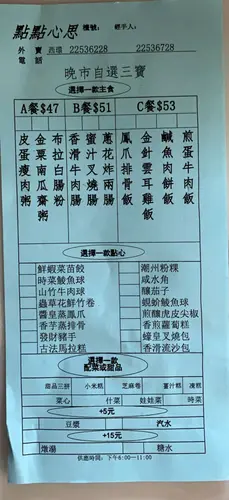 點點心思 檯號: 經手人:
外賣 西環 22536228 22536728
電話
晚市自選三寶
選擇一款主食
A餐$47 B餐$51 C餐$53
皮蛋瘦肉粥
金栗南瓜齋粥
布拉白腸粉
香滑牛肉腸
蜜汁叉燒腸
蔥花炸兩腸
鳳爪排骨飯
金針雲耳雞飯
鹹魚肉餅飯
煎蛋牛肉飯
選擇一款點心
鮮蝦菜苗餃 潮州粉粿
時菜鯪魚球 咸水角
山竹牛肉球 釀茄子
蟲草花鮮竹卷 蜆蚧鯪魚球
醬皇蒸鳳爪 煎釀虎皮尖椒
香芋蒸排骨 香煎蘿蔔糕
發財豬手 蠔皇叉燒包
古法馬拉糕 香滑流沙包
選擇一款
配菜或甜品
甜品三拼 小米糕 芝麻卷 薑汁糕 凍糕
菜心 什菜 娃娃菜 時菜
+5元
豆漿 汽水
+15元
燉湯 糖水
供應時間: 下午6:00-11:00